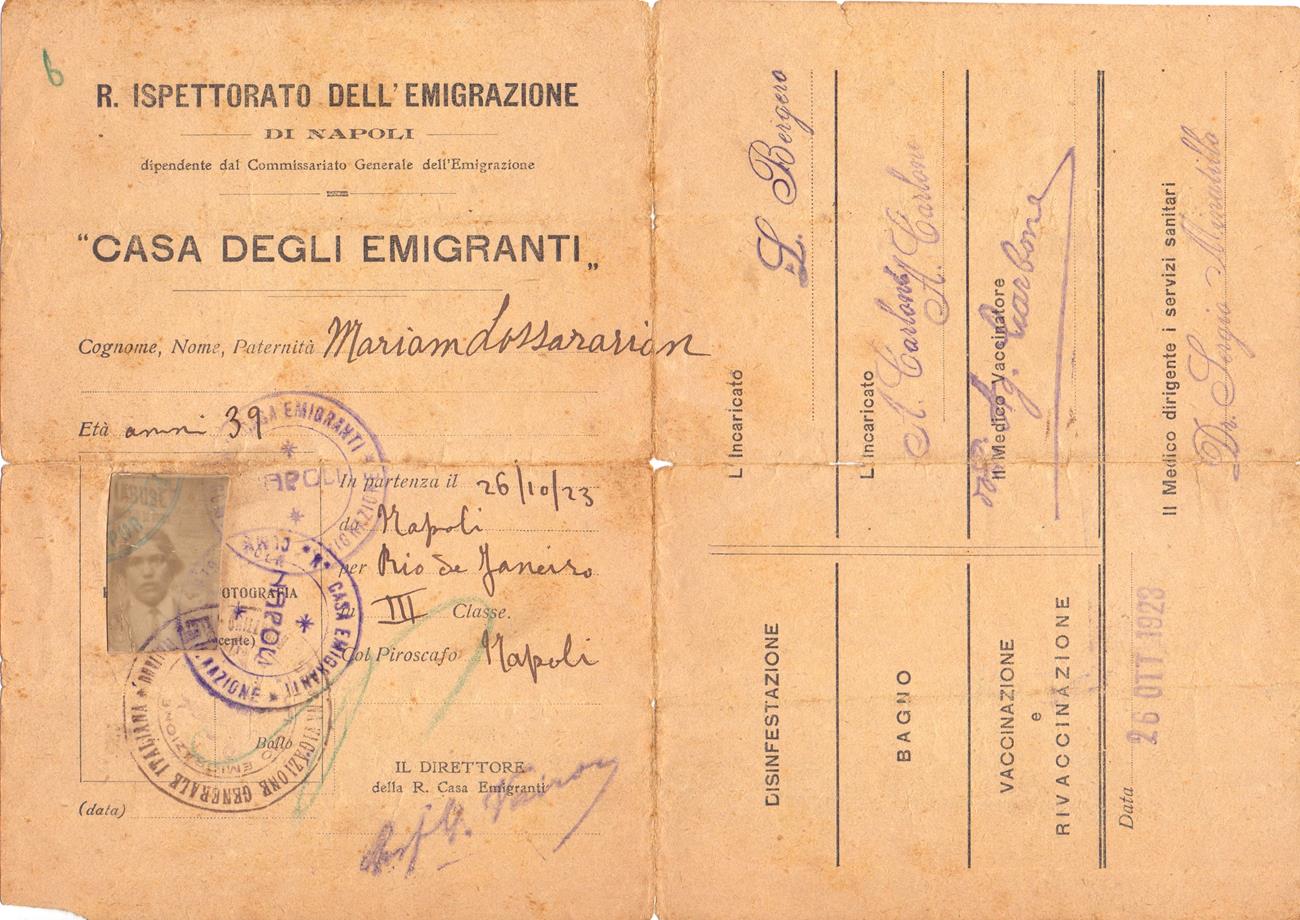 6
R. ISPETTORATO DELL'EMIGRAZIONE
DI NAPOLI
dipendente dal Commissariato Generale dell'Emigrazione
"CASA DEGLI EMIGRANTI„
Cognome, Nome, Paternità Mariam Lossararian
Età anni 39
In partenza il 26/10/23
da Napoli
per Rio de Janeiro
in III Classe.
Col Piroscafo Napoli
Bollo
IL DIRETTORE
della R. Casa Emigranti
(data)
R. CASA EMIGRANTI
NAPOLI
NAVIGAZIONE GENERALE ITALIANA
DISINFESTAZIONE
L'Incaricato
L. Bergero
BAGNO
L'Incaricato
A. Carlone
A. Carlone
VACCINAZIONE
e
RIVACCINAZIONE
Il Medico Vaccinatore
Carbone
Data 26 OTT. 1923
Il Medico dirigente i servizi sanitari
Dr. Sergio